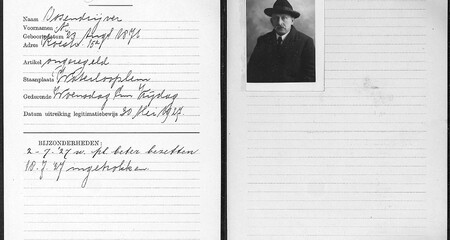 Naam Ossendrijver
Voornamen N.
Geboortedatum 23 Augt 1871
Adres
Artikel ongeregeld
Staanplaats Waterlooplein
Gedurende Woensdag en Vrijdag
Datum uitreiking legitimatiebewijs 20 Mei 1927.
BIJZONDERHEDEN:
2-7-'27 w. pl. beter bezetten
18-7-'27 ingetrokken